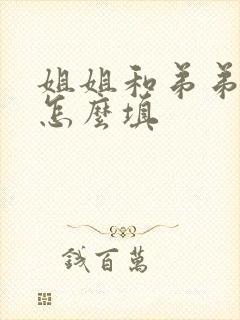 姐姐和弟弟
怎麼填
錢百萬